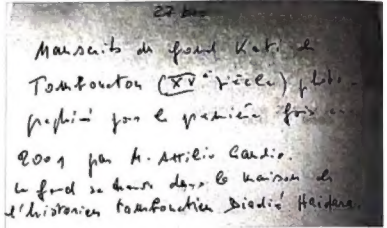 27 bis
Manuscrits du fond Kati de
Tombouctou (XV° siècle) photo-
graphiés pour la première fois en
2001 par M. Attilio Gaudio.
Le fond se trouve dans la maison de
l'historien tombouctien Diadié Haidara.